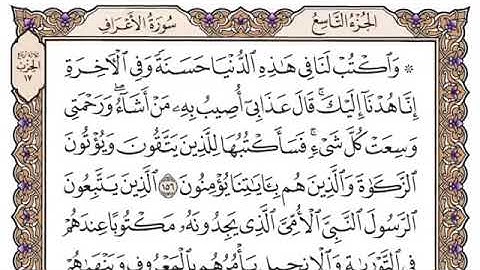 الجزء التاسع
سورة الأعراف
الحزب
١٧
۞ وَٱكۡتُبۡ لَنَا فِي هَٰذِهِ ٱلدُّنۡيَا حَسَنَةٗ وَفِي ٱلۡأٓخِرَةِ
إِنَّا هُدۡنَآ إِلَيۡكَۚ قَالَ عَذَابِيٓ أُصِيبُ بِهِۦ مَنۡ أَشَآءُۖ وَرَحۡمَتِي
وَسِعَتۡ كُلَّ شَيۡءٖۚ فَسَأَكۡتُبُهَا لِلَّذِينَ يَتَّقُونَ وَيُؤۡتُونَ
ٱلزَّكَوٰةَ وَٱلَّذِينَ هُم بِـَٔايَٰتِنَا يُؤۡمِنُونَ ١٥٦ ٱلَّذِينَ يَتَّبِعُونَ
ٱلرَّسُولَ ٱلنَّبِيَّ ٱلۡأُمِّيَّ ٱلَّذِي يَجِدُونَهُۥ مَكۡتُوبًا عِندَهُمۡ
فِي ٱلتَّوۡرَىٰةِ وَٱلۡإِنجِيلِ يَأۡمُرُهُم بِٱلۡمَعۡرُوفِ وَيَنۡهَىٰهُمۡ